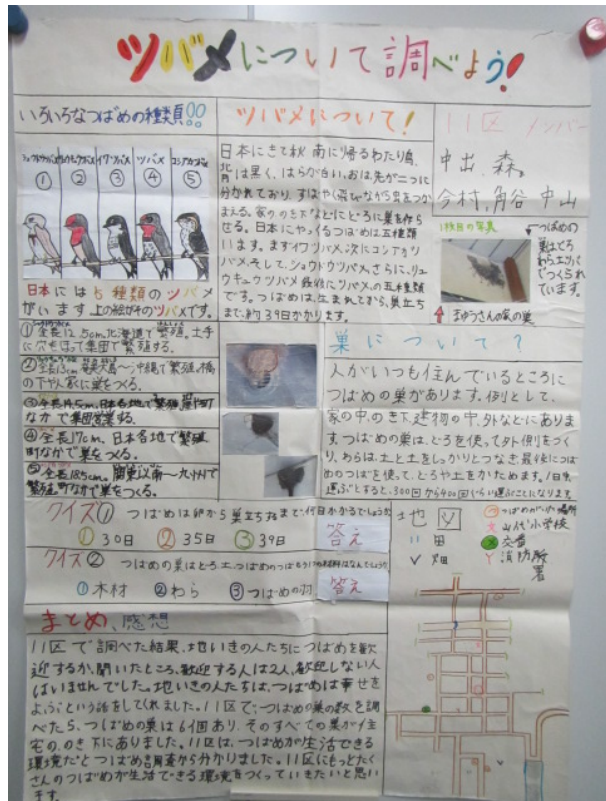 ツバメについて調べよう!
いろいろなつばめの種類!!
ショウドウツバメ
リュウキュウツバメ
イワツバメ
ツバメ
コシアカツバメ
① ② ③ ④ ⑤
日本には5種類のツバメ
がいます上の絵がそのツバメです。
①全長12.5cm、北海道で繁殖。土手
に穴をほって集団で繁殖する。
②全長13cm 奄美大島〜沖縄で繁殖。橋
の下や人家に巣をつくる。
③全長14.5cm、日本各地で繁殖
なかで集団営巣する。
④全長17cm、日本各地で繁殖
町なかで巣をつくる。
⑤全長18.5cm。関東以南〜九州で
繁殖町なかで巣をつくる。
ツバメについて!
日本にきて秋南に帰るわたり鳥、
背は黒く、はらが白い、おは先が二つに
分かれており、すばやく飛びながら虫をつか
まえる。家ののき下などにどろに巣を作ら
せる。日本にやってくるつばめは五種類
います。まずイワツバメ、次にコシアカツ
バメ、そして、ショウドウツバメ、さらに、リュ
ウキュウツバメ最後にツバメ、の五種類
です。つばめは、生まれてから、巣立ち
まで、約39日かかります。
11区 メンバー
中出、森、
今村、角谷 中山
1枚目の写真
つばめの
巣はどろ
わら土などで
つくられ
ています。
まゆうさんの家の巣
巣について?
人がいつも住んでいるところに
つばめの巣があります。例として、
家の中、のき下、建物の中、外などにありま
すつばめの巣は、どろを使って外側をつく
り、わらは、土と土をしっかりとつなぎ最後につば
めのつばを使って、どろや土をかためます。1日巣
運ぶとすると、300回から400回ぐらい運ぶことになります。
クイズ① つばめは卵から巣立ちするまで何日かかるでしょうか
①30日 ②35日 ③39日
答え
クイズ② つばめの巣はどろ、土、つばめのつばもう1つの材料はなんでしょう
①木材 ②わら ③つばめの羽
答え
地図
つばめがいた場所
文 山代小学校
交番
消防署
田
畑
まとめ、感想
11区で調べた結果、地いきの人たちにつばめを歓
迎するか、聞いたところ、歓迎する人は2人、歓迎しない人
はいませんでした。地いきの人たちは、つばめは幸せを
よぶという話をしてくれました。11区で、つばめの巣の数を調
べたら、つばめの巣は6個あり、そのすべての巣が住
宅の、のき下にありました。11区は、つばめが生活できる
環境だとつばめ調査から分かりました。11区にもっとたく
さんのつばめが生活できる環境をつくっていきたいと思い
ます。